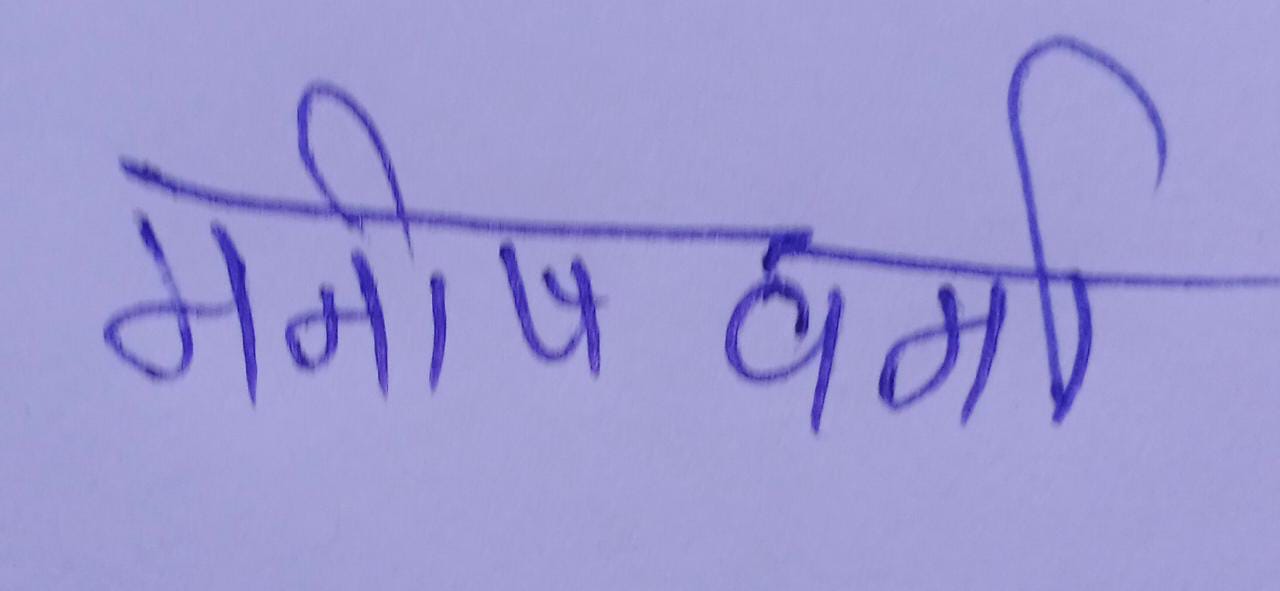 मनीष वर्मा